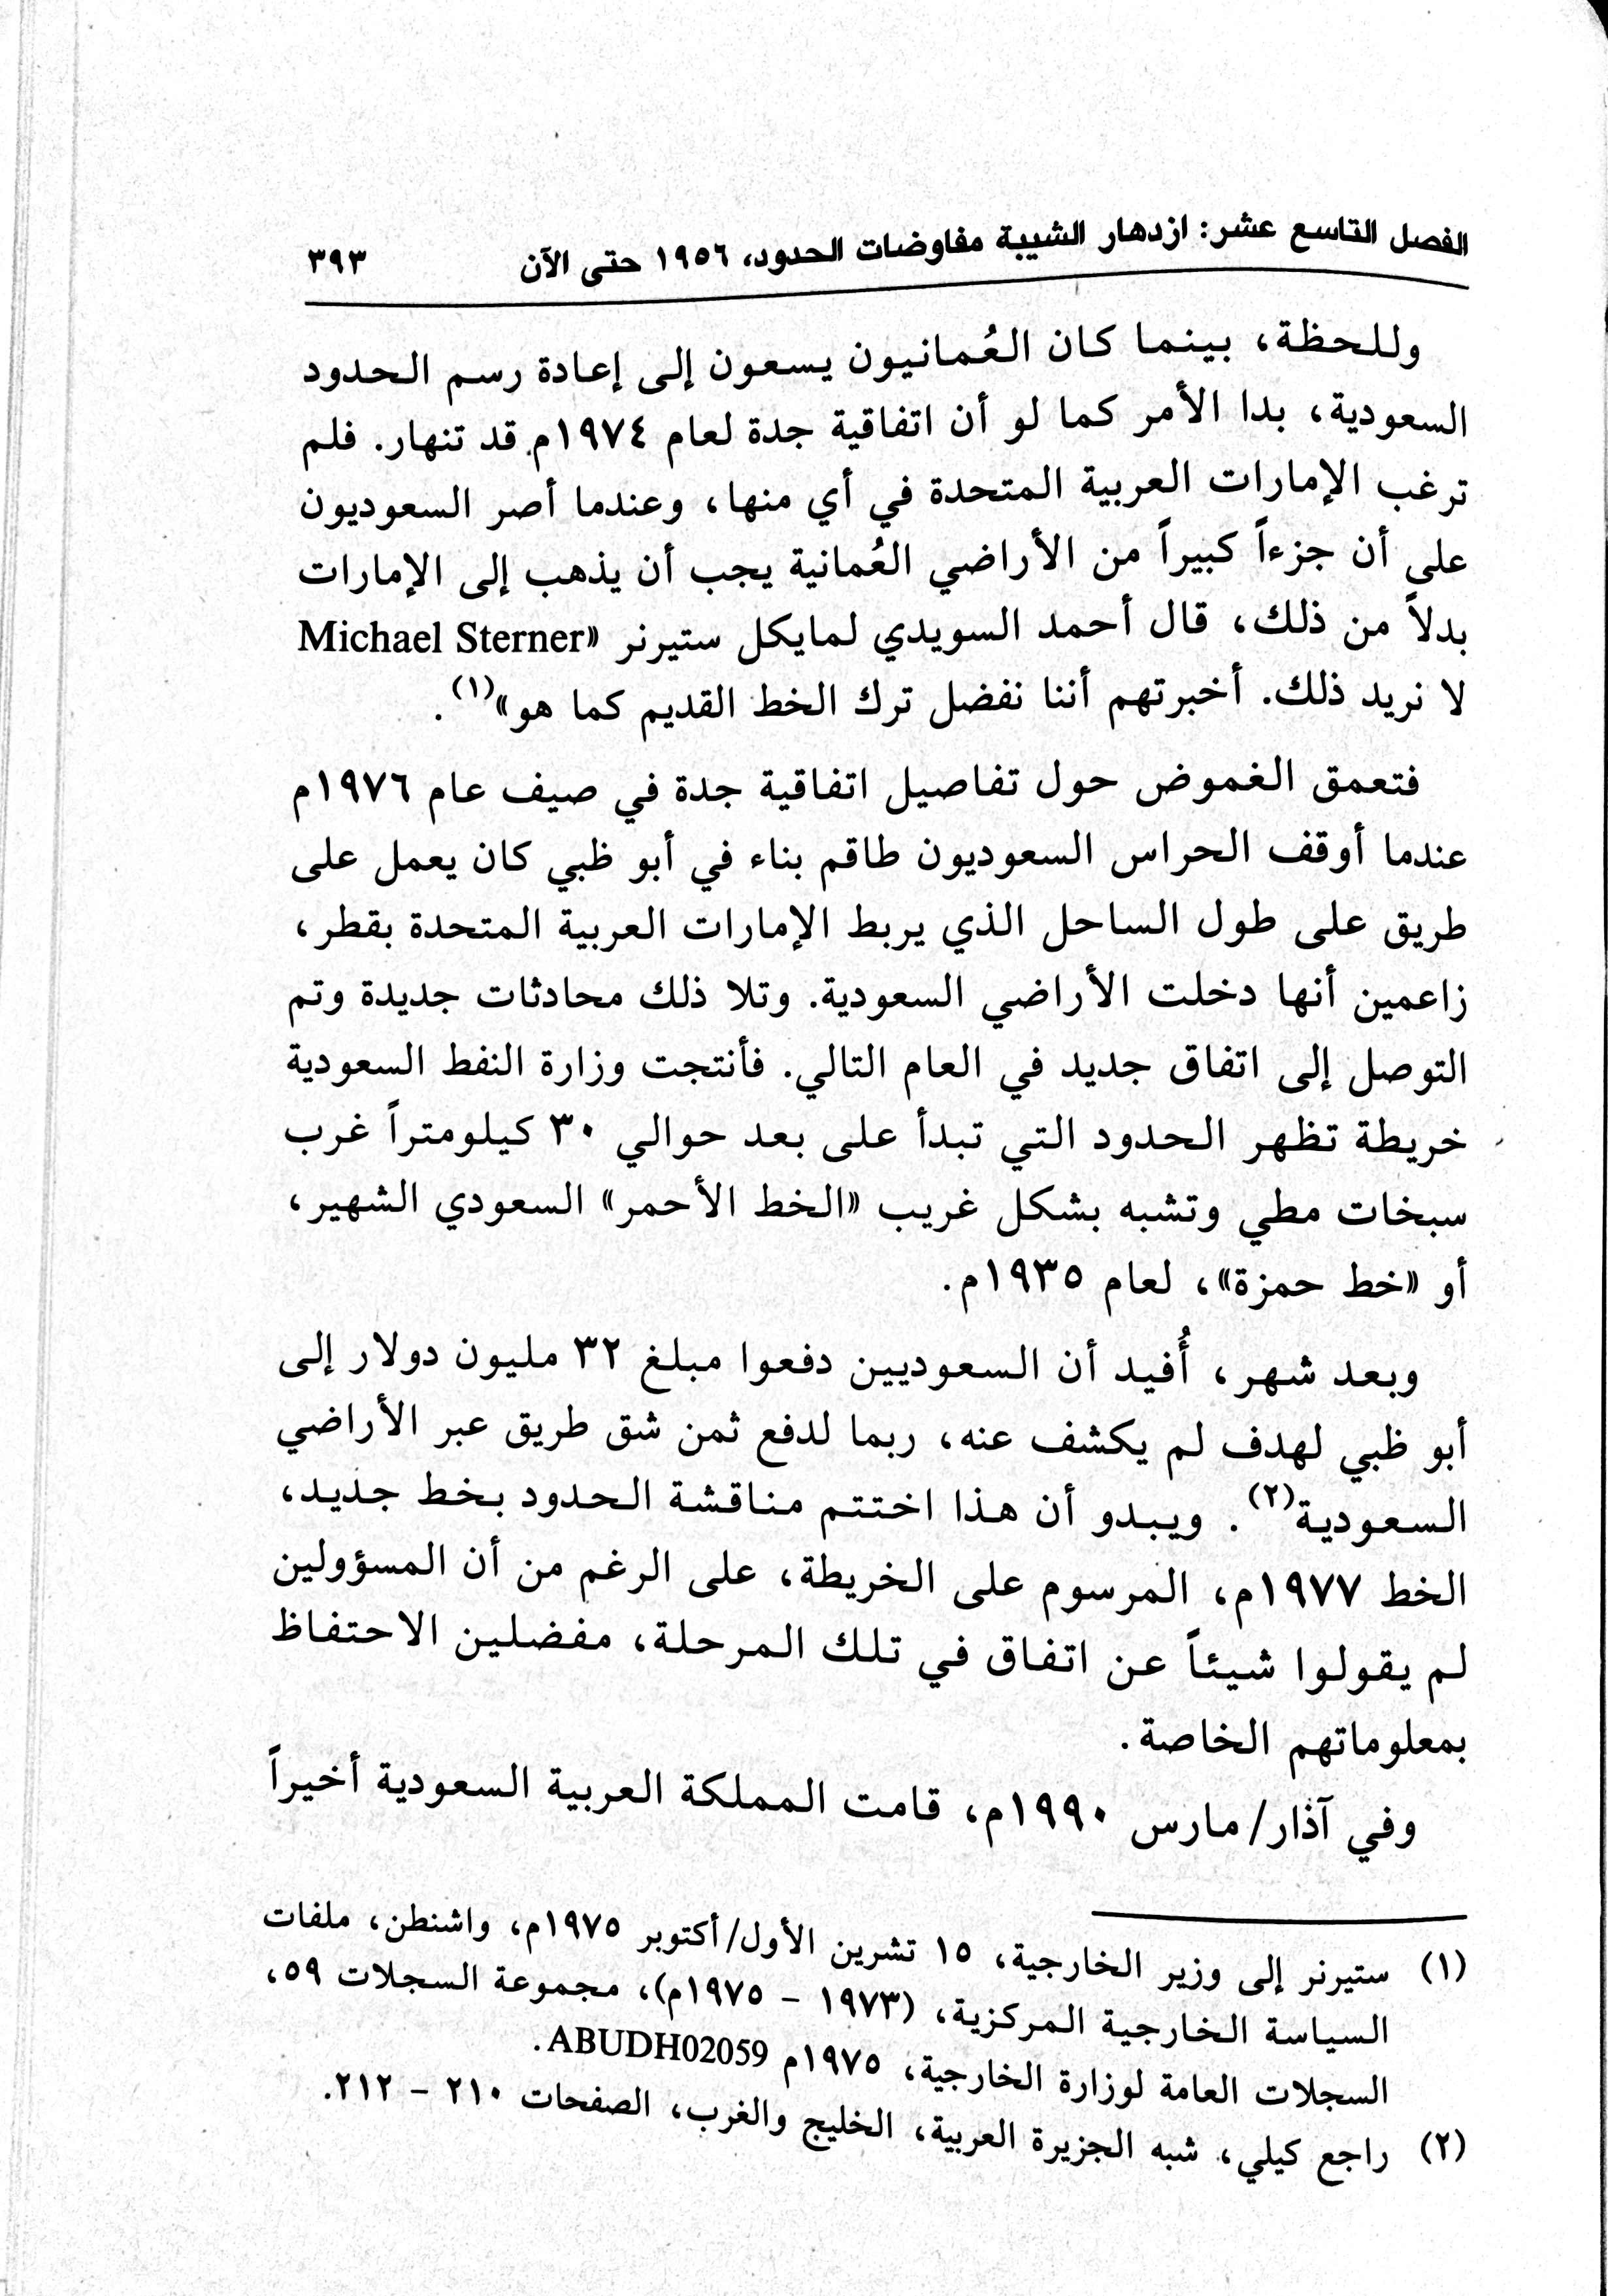 الفصل التاسع عشر: ازدهار الشيبة مفاوضات الحدود، ١٩٥٦ حتى الآن ٣٩٣
وللحظة، بينما كان العُمانيون يسعون إلى إعادة رسم الحدود
السعودية، بدا الأمر كما لو أن اتفاقية جدة لعام ١٩٧٤م قد تنهار. فلم
ترغب الإمارات العربية المتحدة في أي منها، وعندما أصر السعوديون
على أن جزءاً كبيراً من الأراضي العُمانية يجب أن يذهب إلى الإمارات
بدلاً من ذلك، قال أحمد السويدي لمايكل ستيرنر «Michael Sterner
لا نريد ذلك. أخبرتهم أننا نفضل ترك الخط القديم كما هو»(١).
فتعمق الغموض حول تفاصيل اتفاقية جدة في صيف عام ١٩٧٦م
عندما أوقف الحراس السعوديون طاقم بناء في أبو ظبي كان يعمل على
طريق على طول الساحل الذي يربط الإمارات العربية المتحدة بقطر،
زاعمين أنها دخلت الأراضي السعودية. وتلا ذلك محادثات جديدة وتم
التوصل إلى اتفاق جديد في العام التالي. فأنتجت وزارة النفط السعودية
خريطة تظهر الحدود التي تبدأ على بعد حوالي ٣٠ كيلومتراً غرب
سبخات مطي وتشبه بشكل غريب «الخط الأحمر» السعودي الشهير،
أو «خط حمزة»، لعام ١٩٣٥م.
وبعد شهر، أُفيد أن السعوديين دفعوا مبلغ ٣٢ مليون دولار إلى
أبو ظبي لهدف لم يكشف عنه، ربما لدفع ثمن شق طريق عبر الأراضي
السعودية(٢). ويبدو أن هذا اختتم مناقشة الحدود بخط جديد،
الخط ١٩٧٧م، المرسوم على الخريطة، على الرغم من أن المسؤولين
لم يقولوا شيئاً عن اتفاق في تلك المرحلة، مفضلين الاحتفاظ
بمعلوماتهم الخاصة.
وفي آذار/مارس ١٩٩٠م، قامت المملكة العربية السعودية أخيراً
(١) ستيرنر إلى وزير الخارجية، ١٥ تشرين الأول/أكتوبر ١٩٧٥م، واشنطن، ملفات
السياسة الخارجية المركزية، (١٩٧٣ - ١٩٧٥م)، مجموعة السجلات ٥٩،
السجلات العامة لوزارة الخارجية، ١٩٧٥م ABUDH02059.
(٢) راجع كيلي، شبه الجزيرة العربية، الخليج والغرب، الصفحات ٢١٠ - ٢١٢.